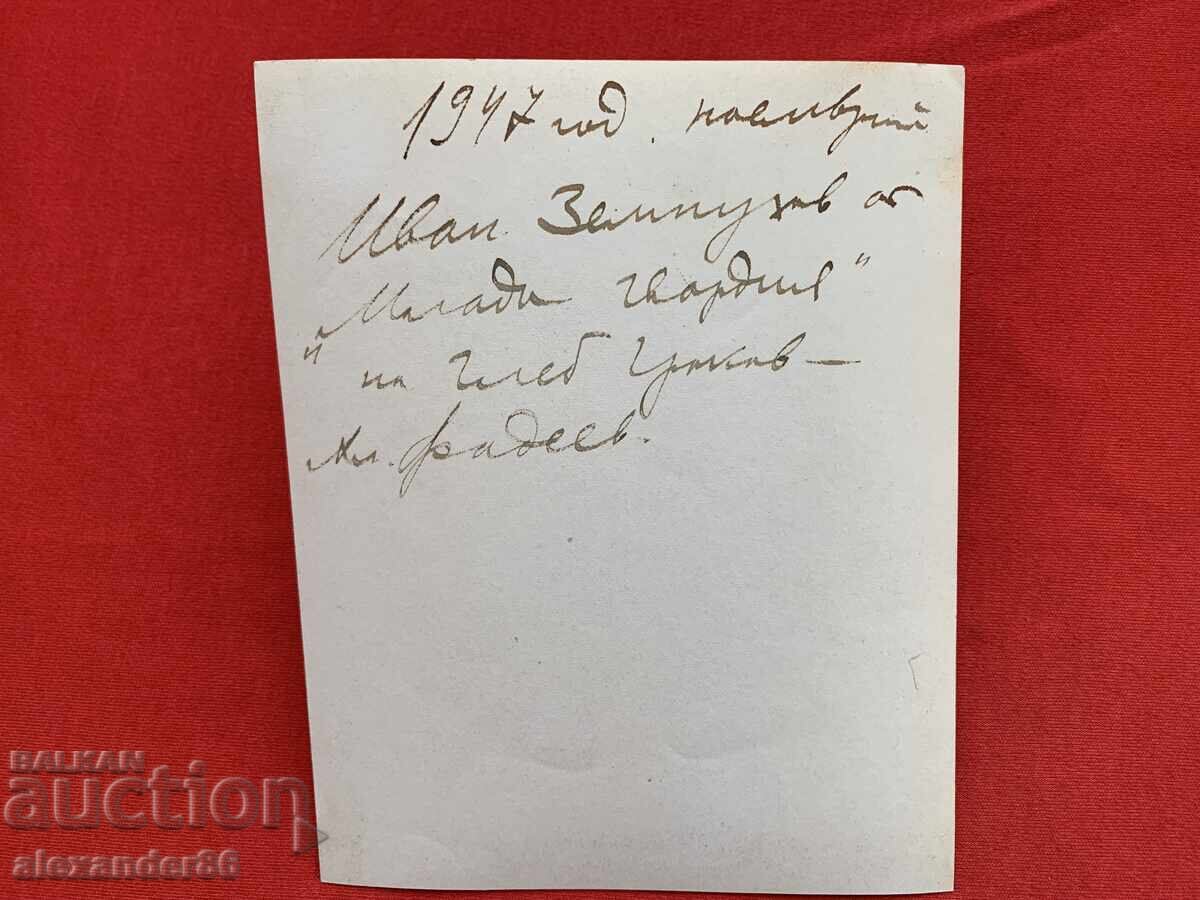 1947 год. ноемврий
Иван Земнухов от
"Млада гвардия"
на Глеб Греков –
Ал. Фадеев.
BALKAN
auction
alexander86